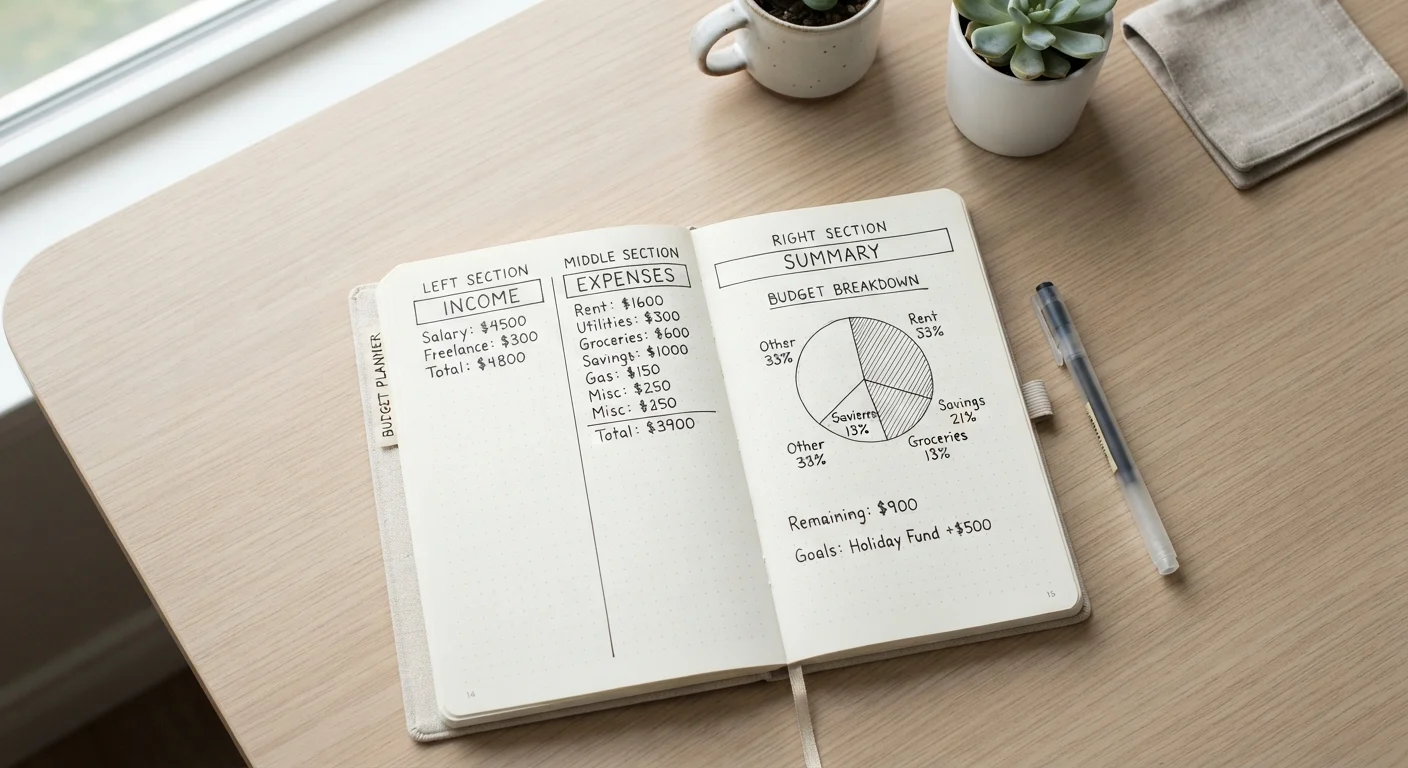 BUDGET PLANNER
LEFT SECTION
INCOME
Salary: $4500
Freelance: $300
Total: $4800
MIDDLE SECTION
EXPENSES
Rent: $1600
Utilities: $300
Groceries: $600
Savings: $1000
Gas: $150
Misc: $250
Misc: $250
Total: $3900
14
RIGHT SECTION
SUMMARY
BUDGET BREAKDOWN
Rent
53%
Other
33%
Savings
21%
Savierrs
13%
Groceries
13%
Other
33%
Remaining: $900
Goals: Holiday Fund +$500
15